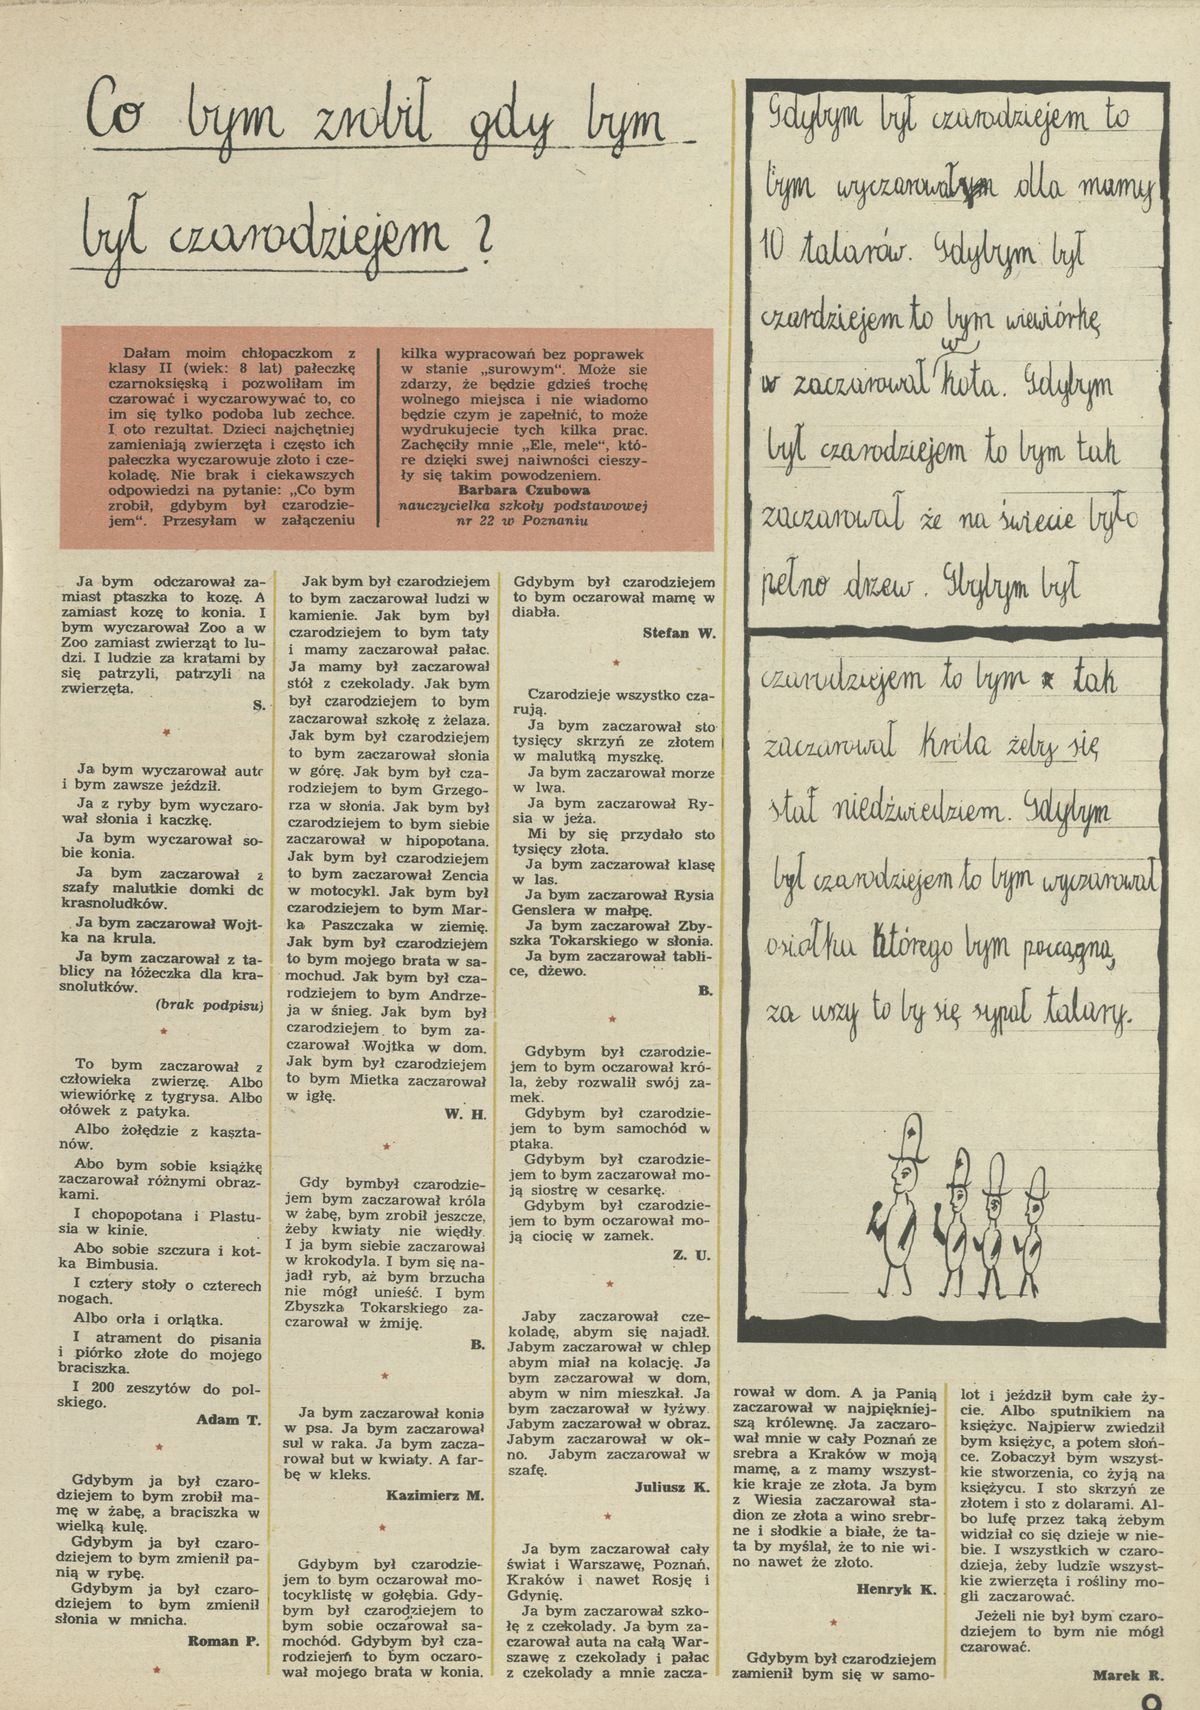 Co bym zrobił gdy bym
był czarodziejem ?
Dałam moim chłopaczkom z
klasy II (wiek: 8 lat) pałeczkę
czarnoksięską i pozwoliłam im
czarować i wyczarowywać to, co
im się tylko podoba lub zechce.
I oto rezultat. Dzieci najchętniej
zamieniają zwierzęta i często ich
pałeczka wyczarowuje złoto i cze-
koladę. Nie brak i ciekawszych
odpowiedzi na pytanie: „Co bym
zrobił, gdybym był czarodzie-
jem“. Przesyłam w załączeniu
kilka wypracowań bez poprawek
w stanie „surowym“. Może sie
zdarzy, że będzie gdzieś trochę
wolnego miejsca i nie wiadomo
będzie czym je zapełnić, to może
wydrukujecie tych kilka prac.
Zachęciły mnie „Ele, mele“, któ-
re dzięki swej naiwności cieszy-
ły się takim powodzeniem.
Barbara Czubowa
nauczycielka szkoły podstawowej
nr 22 w Poznaniu
Ja bym odczarował za-
miast ptaszka to kozę. A
zamiast kozę to konia. I
bym wyczarował Zoo a w
Zoo zamiast zwierząt to lu-
dzi. I ludzie za kratami by
się patrzyli, patrzyli na
zwierzęta.
S.
Ja bym wyczarował auto
i bym zawsze jeździł.
Ja z ryby bym wyczaro-
wał słonia i kaczkę.
Ja bym wyczarował so-
bie konia.
Ja bym zaczarował z
szafy malutkie domki dc
krasnoludków.
Ja bym zaczarował Wojt-
ka na krula.
Ja bym zaczarował z ta-
blicy na łóżeczka dla kra-
snolutków.
(brak podpisu)
To bym zaczarował z
człowieka zwierzę. Albo
wiewiórkę z tygrysa. Albo
ołówek z patyka.
Albo żołędzie z kaszta-
nów.
Abo bym sobie książkę
zaczarował różnymi obraz-
kami.
I chopopotana i Plastu-
sia w kinie.
Abo sobie szczura i kot-
ka Bimbusia.
I cztery stoły o czterech
nogach.
Albo orła i orlątka.
I atrament do pisania
i piórko złote do mojego
braciszka.
I 200 zeszytów do pol-
skiego.
Adam T.
Gdybym ja był czaro-
dziejem to bym zrobił ma-
mę w żabę, a braciszka w
wielką kulę.
Gdybym ja był czaro-
dziejem to bym zmienił pa-
nią w rybę.
Gdybym ja był czaro-
dziejem to bym zmienił
słonia w mnicha.
Roman P.
Jak bym był czarodziejem
to bym zaczarował ludzi w
kamienie. Jak bym był
czarodziejem to bym taty
i mamy zaczarował pałac.
Ja mamy był zaczarował
stół z czekolady. Jak bym
był czarodziejem to bym
zaczarował szkołę z żelaza.
Jak bym był czarodziejem
to bym zaczarował słonia
w górę. Jak bym był cza-
rodziejem to bym Grzego-
rza w słonia. Jak bym był
czarodziejem to bym siebie
zaczarował w hipopotana.
Jak bym był czarodziejem
to bym zaczarował Zencia
w motocykl. Jak bym był
czarodziejem to bym Mar-
ka Paszczaka w ziemię.
Jak bym był czarodziejem
to bym mojego brata w sa-
mochud. Jak bym był cza-
rodziejem to bym Andrze-
ja w śnieg. Jak bym był
czarodziejem to bym za-
czarował Wojtka w dom.
Jak bym był czarodziejem
to bym Mietka zaczarował
w igłę.
W. H.
Gdy bymbył czarodzie-
jem bym zaczarował króla
w żabę, bym zrobił jeszcze,
żeby kwiaty nie więdły.
I ja bym siebie zaczarował
w krokodyla. I bym się na-
jadł ryb, aż bym brzucha
nie mógł unieść. I bym
Zbyszka Tokarskiego za-
czarował w żmiję.
B.
Ja bym zaczarował konia
w psa. Ja bym zaczarował
sul w raka. Ja bym zacza-
rował but w kwiaty. A far-
bę w kleks.
Kazimierz M.
Gdybym był czarodzie-
jem to bym oczarował mo-
tocyklistę w gołębia. Gdy-
bym był czarodziejem to
bym sobie oczarował sa-
mochód. Gdybym był cza-
rodziejem to bym oczaro-
wał mojego brata w konia.
Gdybym był czarodziejem
to bym oczarował mamę w
diabła.
Stefan W.
Czarodzieje wszystko cza-
rują.
Ja bym zaczarował sto
tysięcy skrzyń ze złotem
w malutką myszkę.
Ja bym zaczarował morze
w lwa.
Ja bym zaczarował Ry-
sia w jeża.
Mi by się przydało sto
tysięcy złota.
Ja bym zaczarował klasę
w las.
Ja bym zaczarował Rysia
Genslera w małpę.
Ja bym zaczarował Zby-
szka Tokarskiego w słonia.
Ja bym zaczarował tabli-
ce, dżewo.
B.
Gdybym był czarodzie-
jem to bym oczarował kró-
la, żeby rozwalił swój za-
mek.
Gdybym był czarodzie-
jem to bym samochód w
ptaka.
Gdybym był czarodzie-
jem to bym zaczarował mo-
ją siostrę w cesarkę.
Gdybym był czarodzie-
jem to bym oczarował mo-
ją ciocię w zamek.
Z. U.
Jaby zaczarował cze-
koladę, abym się najadł.
Jabym zaczarował w chlep
abym miał na kolację. Ja
bym zaczarował w dom,
abym w nim mieszkał. Ja
bym zaczarował w łyżwy.
Jabym zaczarował w obraz.
Jabym zaczarował w ok-
no. Jabym zaczarował w
szafę.
Juliusz K.
Ja bym zaczarował cały
świat i Warszawę, Poznań,
Kraków i nawet Rosję i
Gdynię.
Ja bym zaczarował szko-
łę z czekolady. Ja bym za-
czarował auta na całą War-
szawę z czekolady i pałac
z czekolady a mnie zacza-
rował w dom. A ja Panią
zaczarował w najpiękniej-
szą królewnę. Ja zaczaro-
wał mnie w cały Poznań ze
srebra a Kraków w moją
mamę, a z mamy wszyst-
kie kraje ze złota. Ja bym
z Wiesia zaczarował sta-
dion ze złota a wino srebr-
ne i słodkie a białe, że ta-
ta by myślał, że to nie wi-
no nawet że złoto.
Henryk K.
Gdybym był czarodziejem
zamienił bym się w samo-
lot i jeździł bym całe ży-
cie. Albo sputnikiem na
księżyc. Najpierw zwiedził
bym księżyc, a potem słoń-
ce. Zobaczył bym wszyst-
kie stworzenia, co żyją na
księżycu. I sto skrzyń ze
złotem i sto z dolarami. Al-
bo lufę przez taką żebym
widział co się dzieje w nie-
bie. I wszystkich w czaro-
dzieja, żeby ludzie wszyst-
kie zwierzęta i rośliny mo-
gli zaczarować.
Jeżeli nie był bym czaro-
dziejem to bym nie mógł
czarować.
Marek R.
Gdybym był czarodziejem to
bym wyczarował dla mamy
10 talarów. Gdybym był
czardziejem to bym wiewiórkę
zaczarował w kota. Gdybym
był czarodziejem to bym tak
zaczarował że na świecie było
pełno drzew. Gbybym był
czarodziejem to bym tak
zaczarował króla żeby się
stał niedźwiedziem. Gdybym
był czarodziejem to bym wyczarował
osiołka którego bym pociągną
za uszy to by się sypał talary.
9